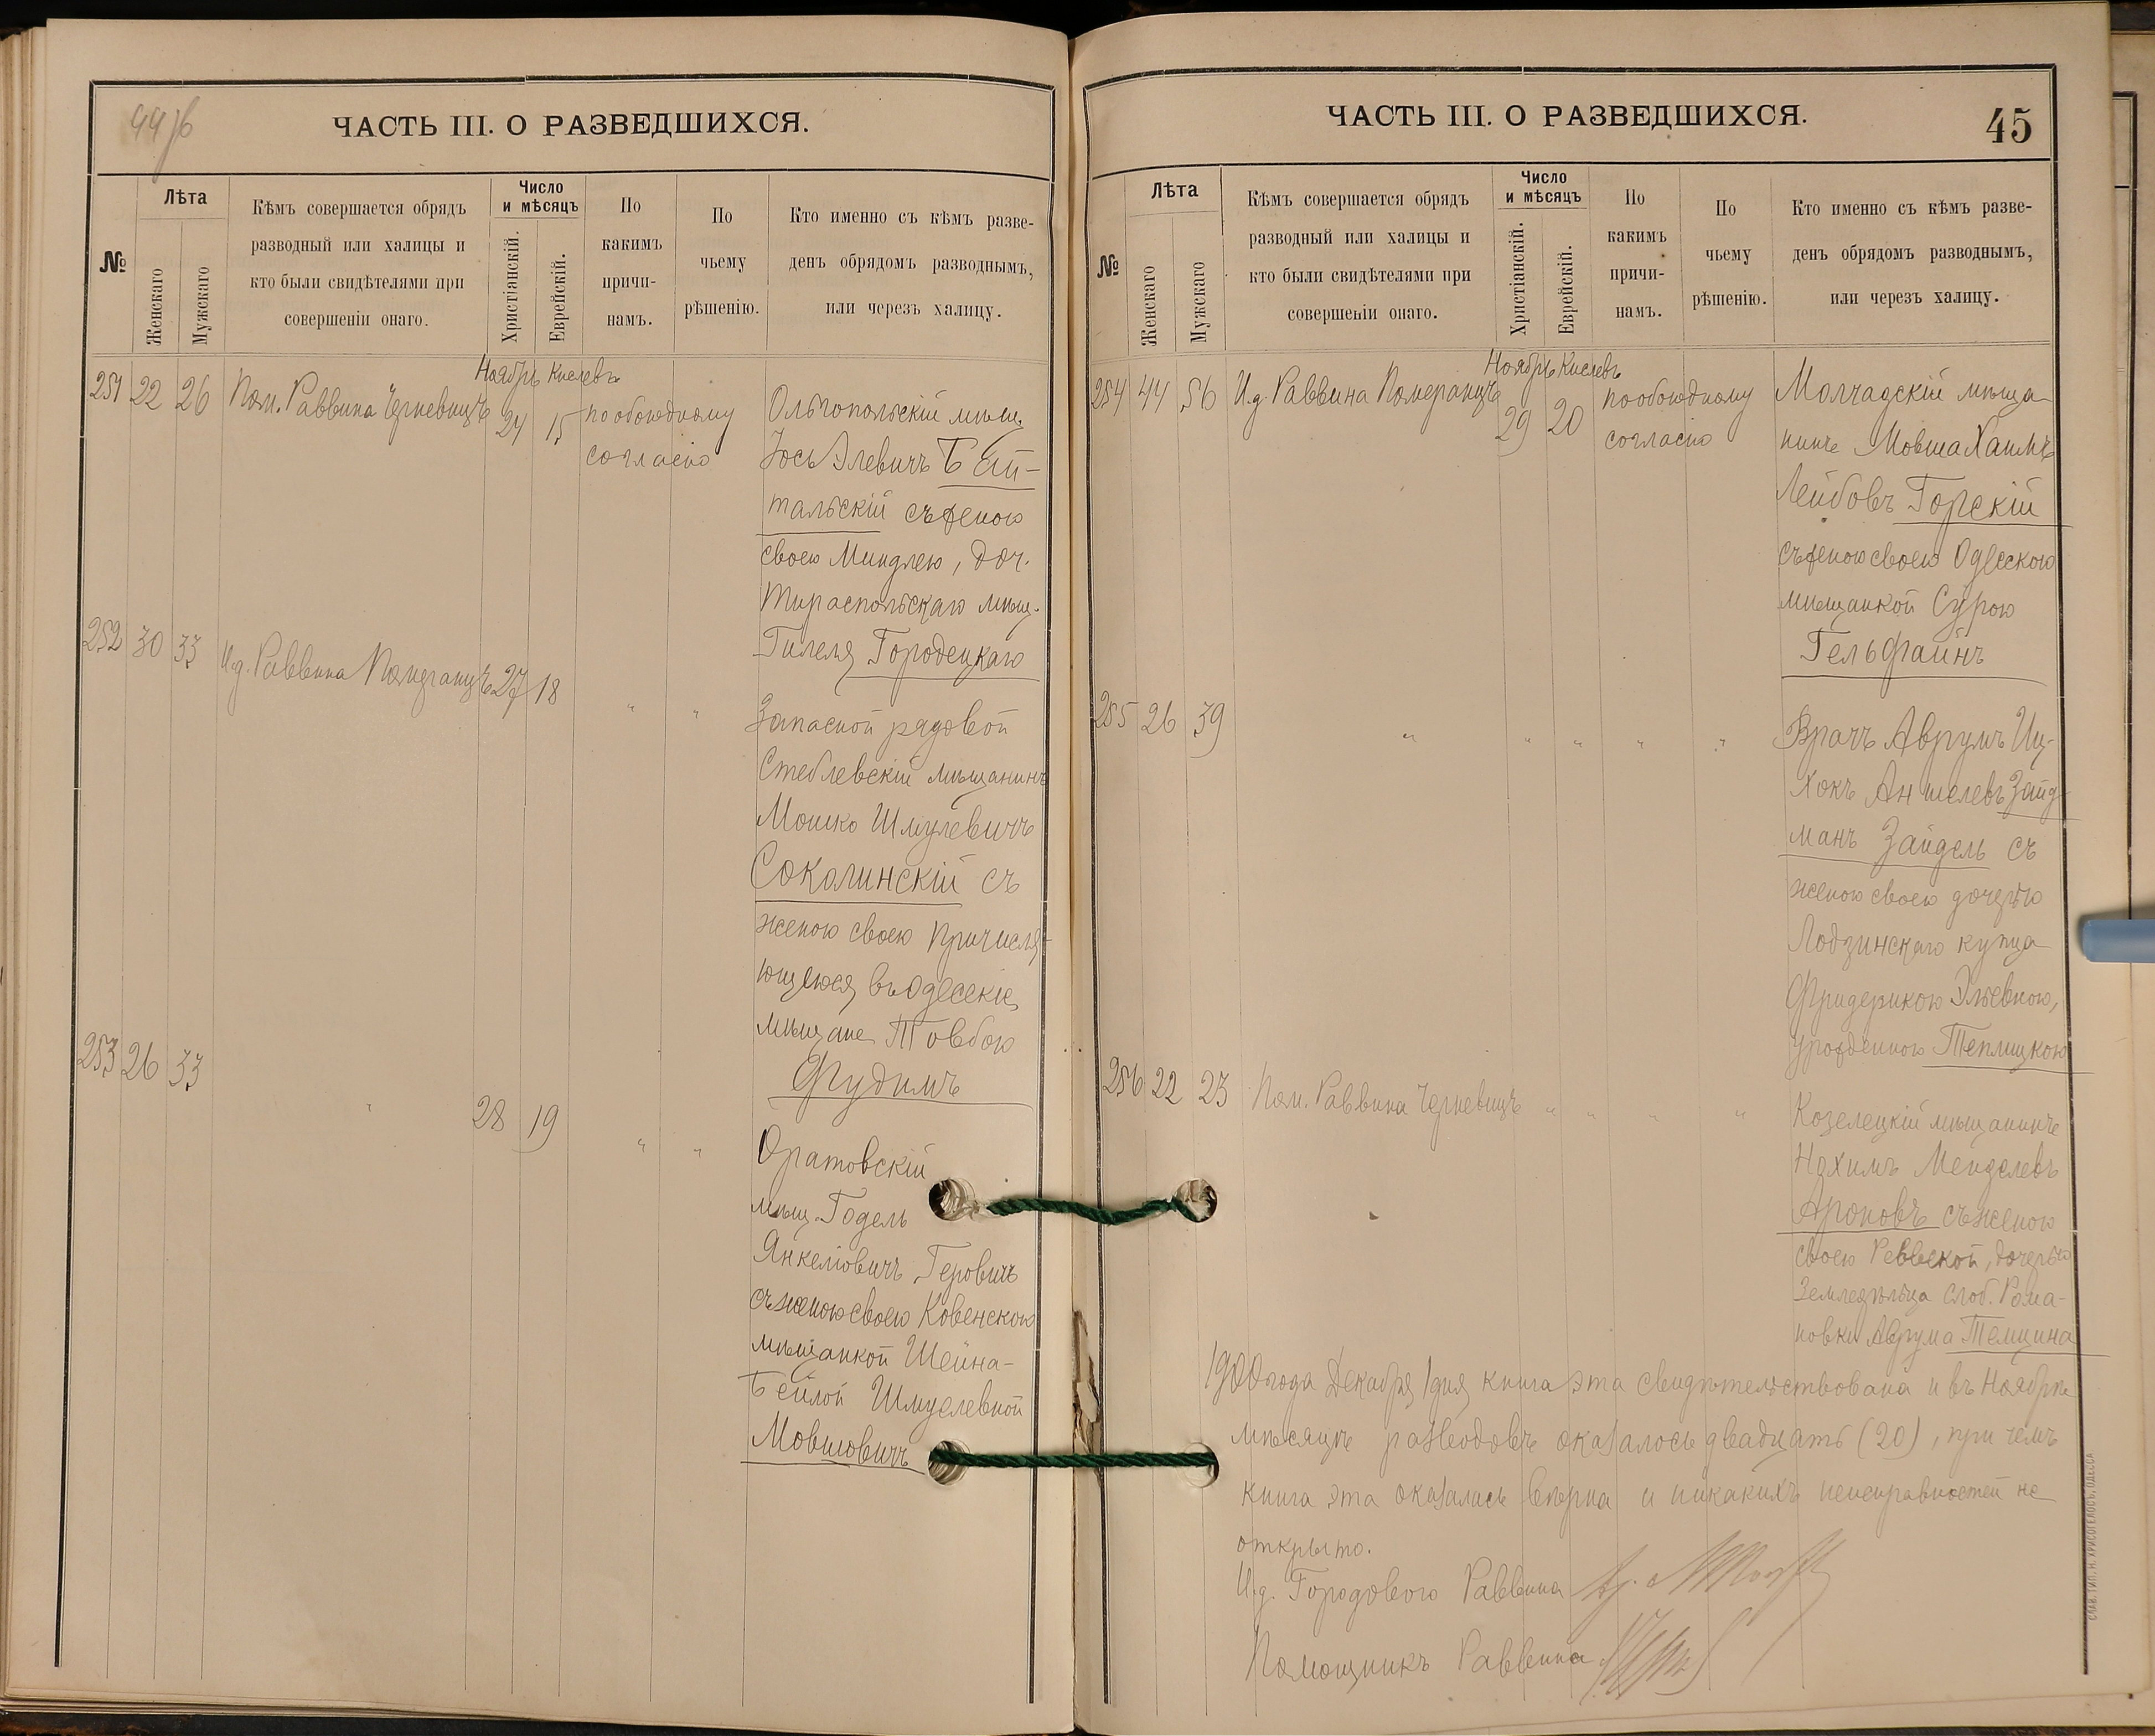 44 об
ЧАСТЬ III. О РАЗВЕДШИХСЯ.
№
Лѣта
Женскаго
Мужскаго
Кѣмъ совершается обрядъ
разводный или халицы и
кто были свидѣтелями при
совершеніи онаго.
Число
и мѣсяцъ
Христіанскій.
Еврейскій.
По
какимъ
причи-
намъ.
По
чьему
рѣшенію.
Кто именно съ кѣмъ разве-
денъ обрядомъ разводнымъ,
или черезъ халицу.
Ноябрь Кислевъ
251 22 26 Пом. Раввина Черневицъ 24 15 по обоюдному
согласію
Ольгопольскій мѣщ.
Іось Элевичъ Бей-
тальскій съ женою
своею Миндлею, доч.
Тираспольскаго мѣщ.
Гилеля Городецкаго
252 30 33 И.д. Раввина Померанцъ 27 18 " "
Запасной рядовой
Стеблевскій мѣщанинъ
Мошко Шмулевичъ
Соколинскій съ
женою своею причисля-
ющеюся въ Одесскіе
мѣщане Товбою
Фудимъ
253 26 33 " 28 19 " "
Оратовскій
мѣщ. Годель
Янкеліовичъ Геровичъ
съ женою своею Ковенскою
мѣщанкой Шейна-
Бейлой Шмуелевной
Мовшовичъ
ЧАСТЬ III. О РАЗВЕДШИХСЯ.
45
№
Лѣта
Женскаго
Мужскаго
Кѣмъ совершается обрядъ
разводный или халицы и
кто были свидѣтелями при
совершеніи онаго.
Число
и мѣсяцъ
Христіанскій.
Еврейскій.
По
какимъ
причи-
намъ.
По
чьему
рѣшенію.
Кто именно съ кѣмъ разве-
денъ обрядомъ разводнымъ,
или черезъ халицу.
Ноябрь Кислевъ
254 44 56 И.д. Раввина Померанцъ 29 20 по обоюдному
согласію
Молчадскій мѣща-
нинъ Мовша Хаимъ
Лейбовъ Горскій
съ женою своею Одесскою
мѣщанкой Сурою
Гельфайнъ
255 26 39 " " " " "
Врачъ Аврумъ Иц-
хокъ Аншелевъ Зайд-
манъ Зайдель съ
женою своею дочерью
Лодзинскаго купца
Фридерикою Эльевною,
урожденною Теплицкою
256 22 23 Пом. Раввина Черневицъ " " " "
Козелецкій мѣщанинъ
Нахимъ Менделевъ
Ароновъ съ женою
своею Реввекой, дочерью
земледѣльца слоб. Рома-
новки Аврума Темцина
1900 года Декабря 1 дня книга эта свидѣтельствована и въ Ноябрѣ
мѣсяцѣ разводовъ оказалось двадцать (20), при чемъ
книга эта оказалась вѣрна и никакихъ неисправностей не
открыто.
И.д. Городового Раввина
Помощникъ Раввина
СЛАВ. ТИП. Н. ХРИСОГЕЛОСЪ, ОДЕССА